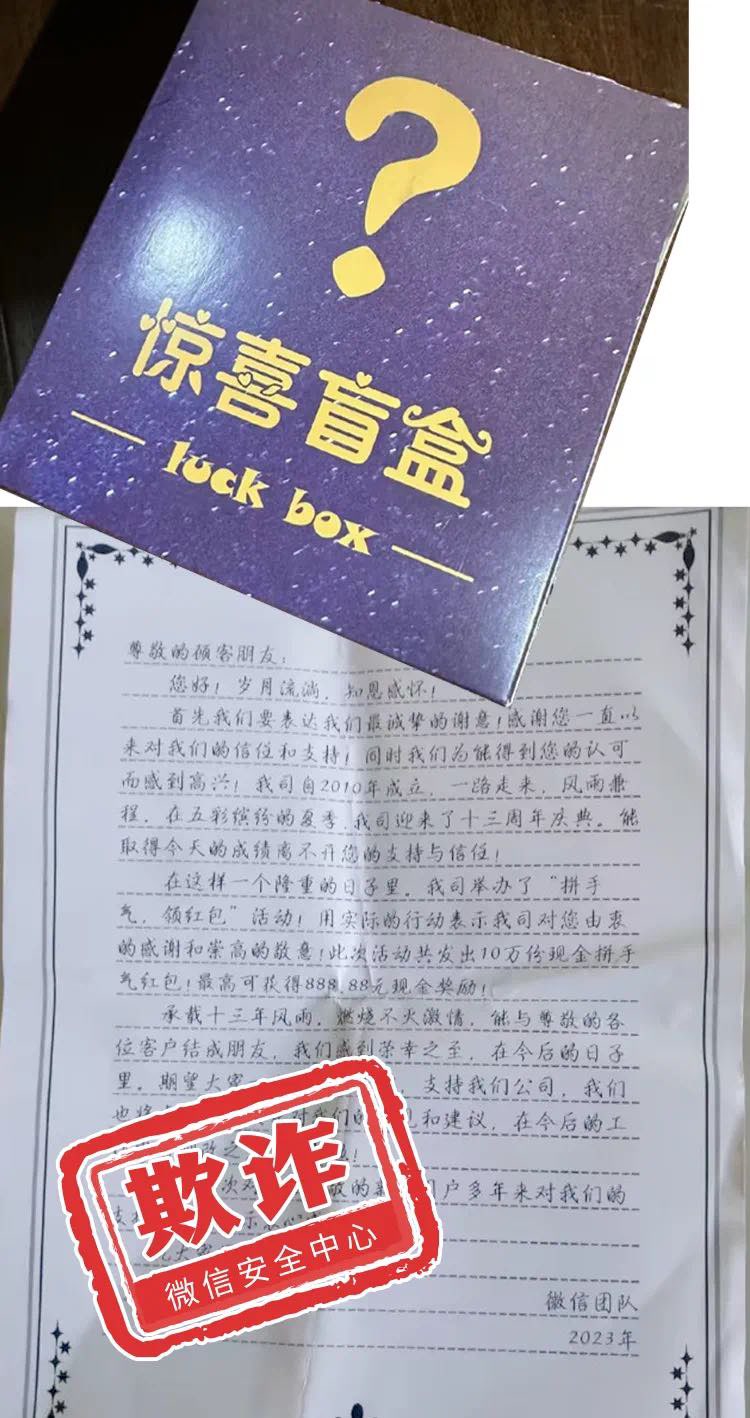 ?
惊喜盲盒
luck box
尊敬的顾客朋友：
您好！岁月流淌，知恩感怀！
首先我们要表达我们最诚挚的谢意！感谢您一直以
来对我们的信任和支持！同时我们为能得到您的认可
而感到高兴！我司自2010年成立，一路走来，风雨兼
程，在五彩缤纷的夏季，我司迎来了十三周年庆典。能
取得今天的成绩离不开您的支持与信任！
在这样一个隆重的日子里。我司举办了“拼手
气，领红包”活动！用实际的行动表示我司对您由衷
的感谢和崇高的敬意！此次活动共发出10万份现金拼手
气红包！最高可获得888.88元现金奖励！
承载十三年风雨，燃烧不火激情，能与尊敬的各
位客户结成朋友，我们感到荣幸之至，在今后的日子
里。期望大家 支持我们公司，我们
也将 对我们的 见和建议，在今后的工
改之
次对 敬的 户多年来对我们的
支持 示衷心
欺诈
微信安全中心
微信团队
2023年